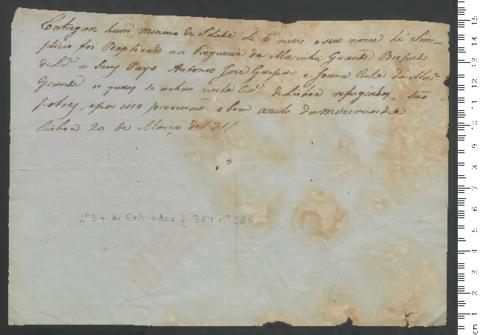 Entregase hum menino de Idade de 6 mezes o seu nome he Sim-
plicio foi Baptizado na Freguezia da Marinha Grande Bispado
de Lrª. os Seus Pays Antonio Jose Gaspar, e Joana Rita da Mª.
Grande os quaes se achão nesta Cidª. de Lisboa refugiados, são
pobres, e por isso procurão o bom azilo da mizericordia
Lisboa 20 de Março de 1811
Lº 54 de Entradas f. 384 nº 585